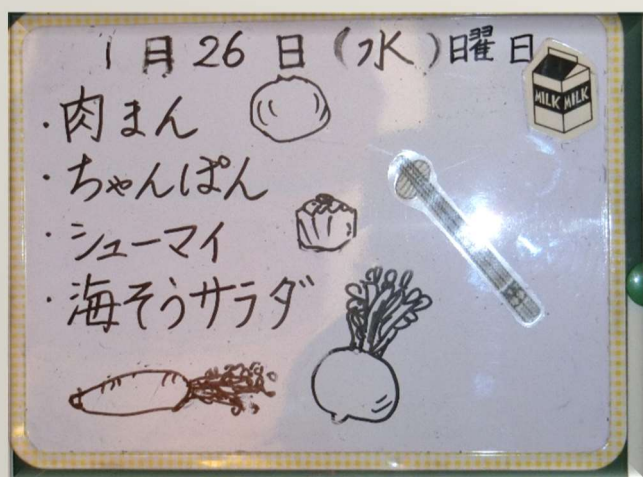 1月26日(水)曜日
MILK MILK
・肉まん
・ちゃんぽん
・シューマイ
・海そうサラダ